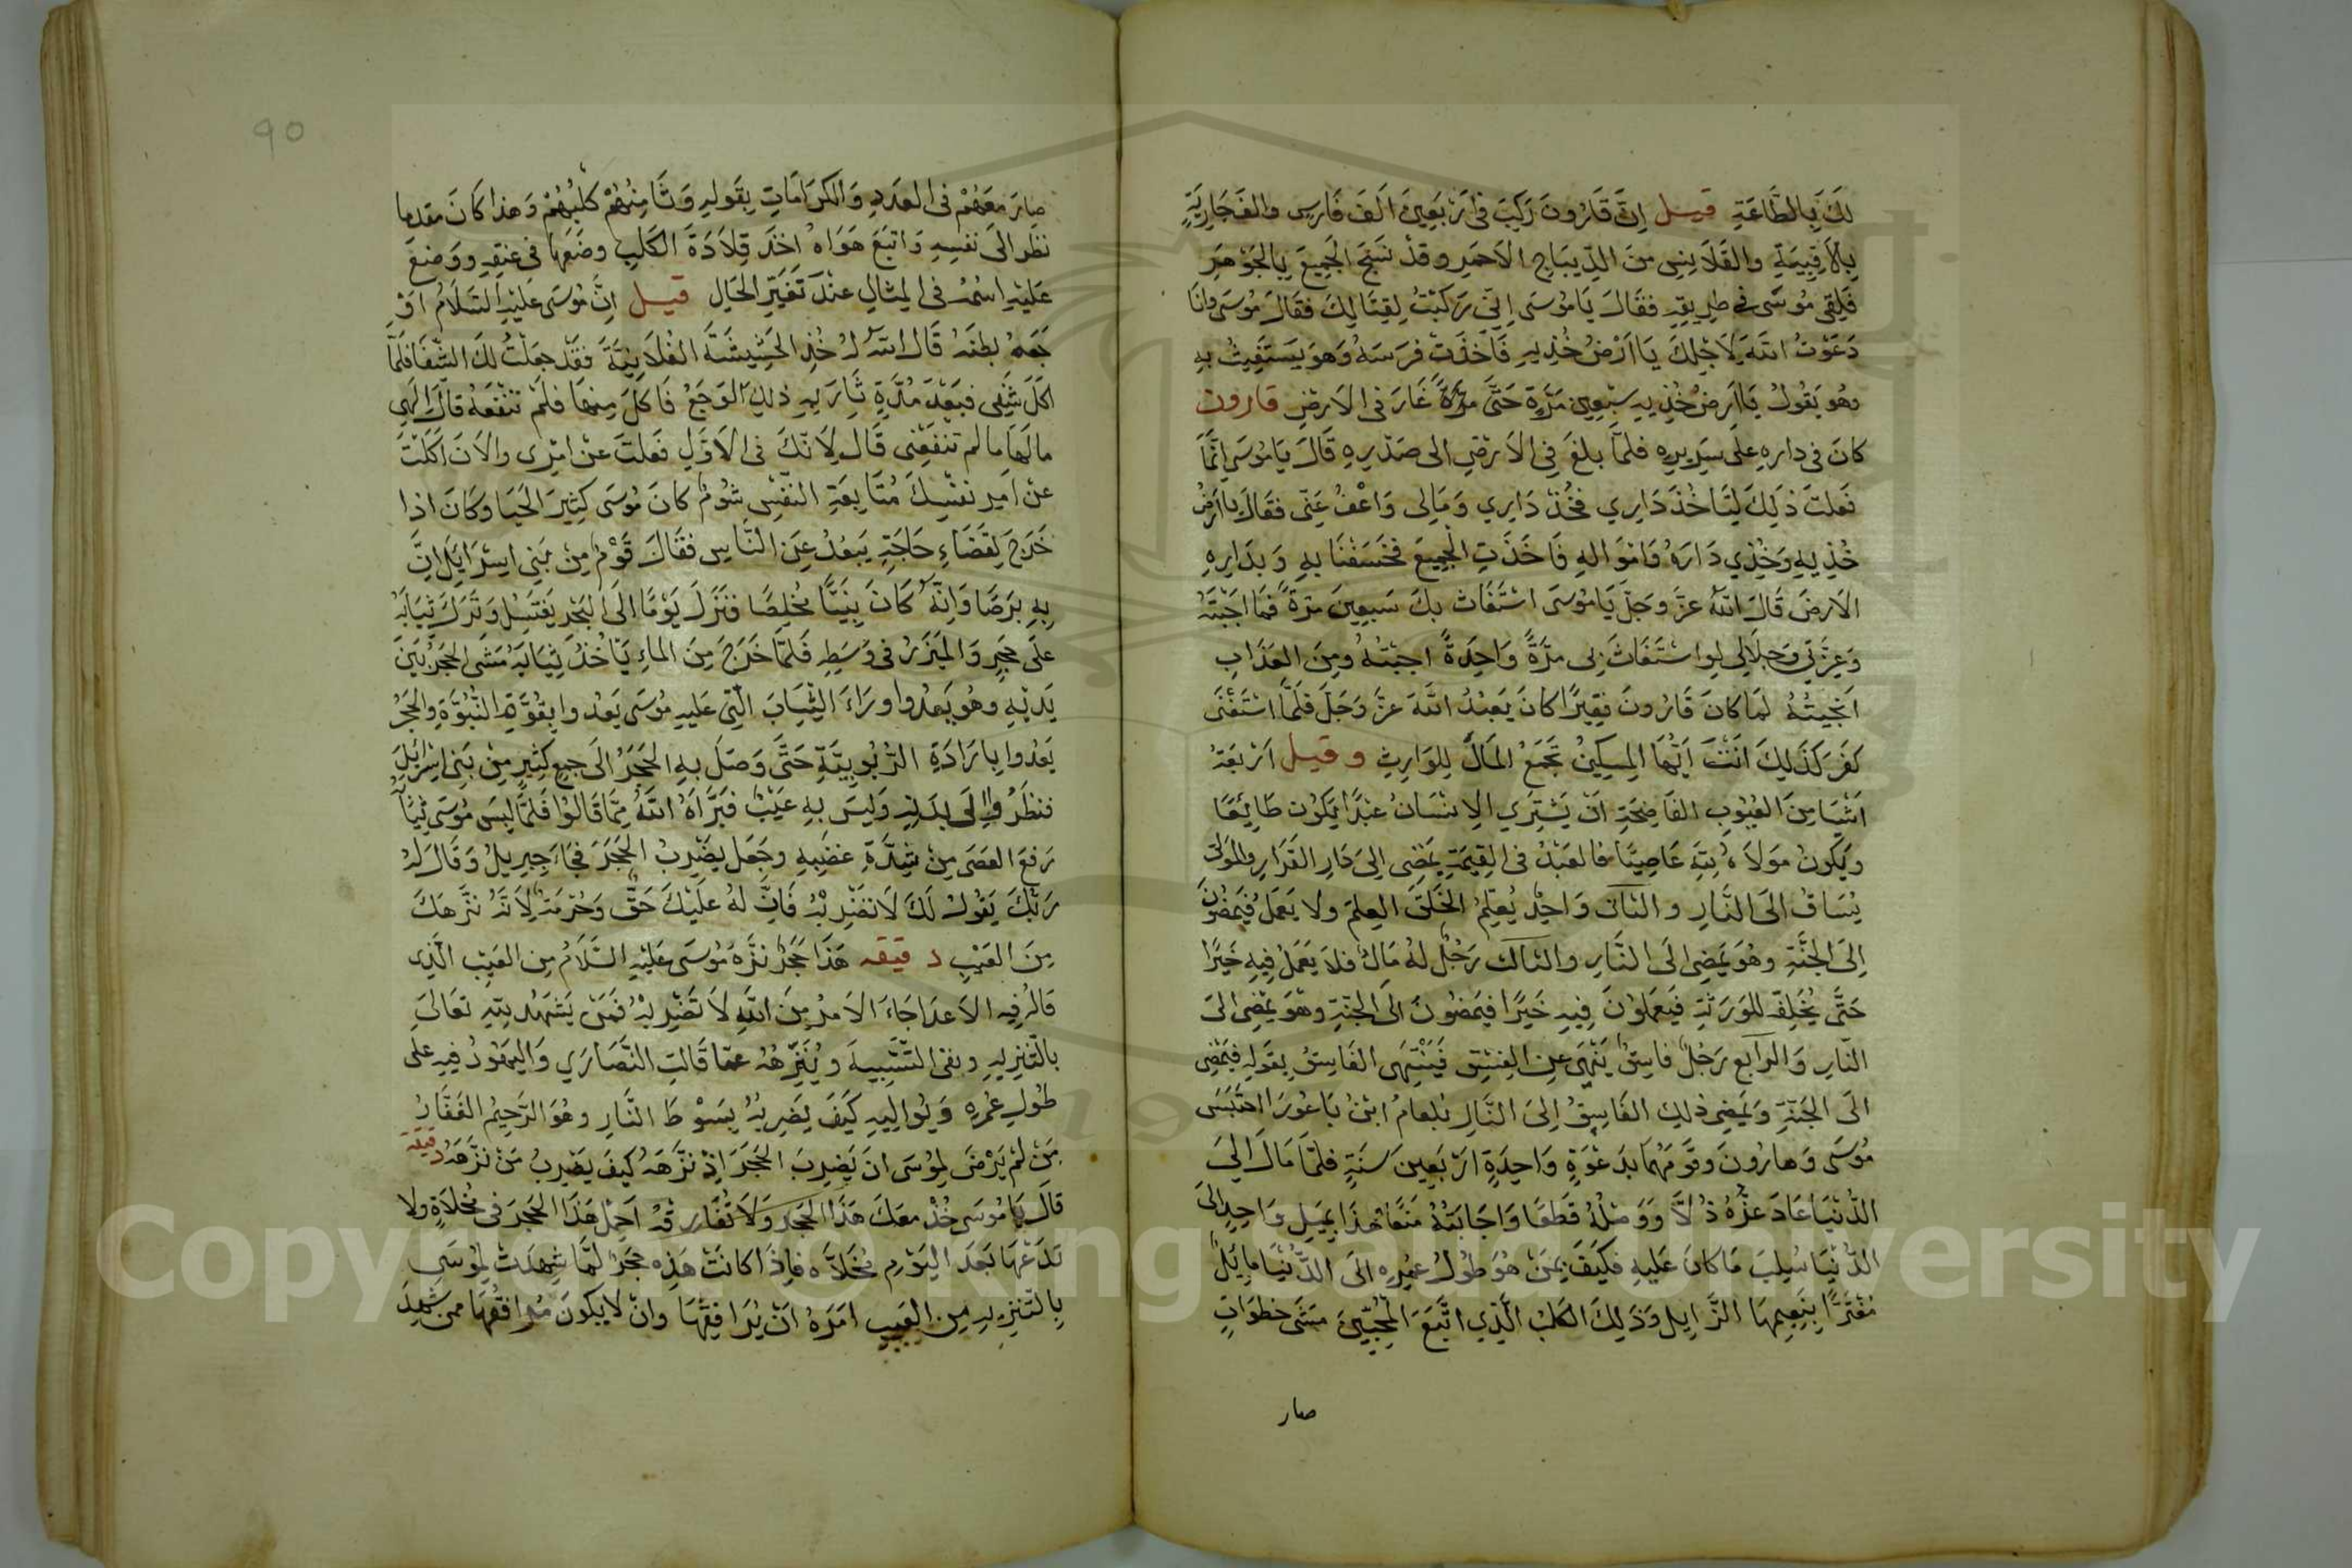 لك بالطاعة قيل ان قارون ركب فى اربعين الف فارس والف جارية
بالاقبية والقلانس من الديباج الاحمر وقد نسج الجميع بالجوهر
فلقى موسى فى طريقه فقال يا موسى انى ركبت لقتالك فقال موسى وانا
دعوت الله لاجلك يا ارض خذيه فاخذت فرسه وهو يستغيث به
وهو يقول يا ارض خذيه سبعين مرة حتى غار فى الارض قارون
كان فى داره على سريره فلما بلغ فى الارض الى صدره قال يا موسى انما
فعلت ذلك لتاخذ داري فخذ داري ومالى واعف عنى فقال يا ارض
خذيه وخذي داره وامواله فاخذت الجميع فخسفنا به وبداره
الارض قال الله عز وجل يا موسى استغاث بك سبعين مرة فما اجبته
وعزتي وجلالي لو استغاث بى مرة واحدة اجبته ومن العذاب
انجيته لما كان قارون فقيرا كان يعبد الله عز وجل فلما استغنى
كفر كذلك انت ايها المسكين تجمع المال للوارث وقيل اربعة
اشيا من العيوب الفاضحة ان يشتري الانسان عبدا يكون طايعا
ويكون مولاه لله عاصيا فالعبد فى القيمة يمضى الى دار القرار والمولى
يساق الى النار والثانى واحد يعلم الخلق العلم ولا يعمل فيمضون
الى الجنة وهو يمضى الى النار والثالث رجل له مال فلا يعمل فيه خيرا
حتى يخلفه للورثة فيعملون فيه خيرا فيمضون الى الجنة وهو يمضى الى
النار والرابع رجل فاسق ينهى عن الفسق فينتهى الفاسق بقوله فيمضى
الى الجنة ويمضى ذلك الفاسق الى النار بلعام ابن باعورا احتبس
موسى وهارون وقومهما بدعوة واحدة اربعين سنة فلما مال الى
الدنيا عاد عزه ذلا ووصله قطعا واجابته منعا هذا بميل واحد الى
الدنيا سلب ما كان عليه فكيف بمن هو طول عمره الى الدنيا مايل
مغترا بنعيمها الزايل وذلك الكلب الذي اتبع المحبين مشى خطوات
صار
90
صار معهم فى العدد والكرامات بقوله وثامنهم كلبهم وهذا كان مقدما
نظر الى نفسه واتبع هواه اخذ قلادة الكلب وضعها فى عنقه ووضع
عليه اسمه فى المثال عند تغير الحال قيل ان موسى عليه السلام او
جعه بطنه قال الله له خذ الحشيشة الفلانية فقد جعلت لك الشفا فلما
اكل شفى فبعد مدة ثار به ذلك الوجع فاكل منها فلم تنفعه قال الهى
مالها ما لم تنفعنى قال لانك فى الاول فعلت عن امرى والان اكلت
عن امر نفسك متابعة النفس شوم كان موسى كثير الحيا وكان اذا
خرج لقضاء حاجة يبعد عن الناس فقال قوم من بنى اسرايل ان
به برصا وانه كان نبيا مخلصا فنزل يوما الى البحر يغتسل وترك ثيابه
على حجر والميزر فى وسطه فلما خرج من الماء ياخذ ثيابه مشى الحجر بين
يديه وهو يعدوا وراء الثياب التى عليه موسى يعدوا بقوة النبوة والحجر
يعدوا بارادة الربوبية حتى وصل به الحجر الى جمع كثير من بنى اسرايل
فنظروا الى بدنه وليس به عيب فبراه الله مما قالوا فلما لبس موسى ثيابه
رفع العصى من شدة غضبه وجعل يضرب الحجر فجاء جبريل وقال له
ربك يقول لك لا تضربه فان له عليك حق وحرمة لانه نزهك
من العيب دقيقه هذا حجر نزه موسى عليه السلام من العيب الذى
قاله فيه الاعدا جاء الامر من الله لا تضربه فمن يشهد لله تعالى
بالتنزيه ونفى التشبيه وينزهه عما قالت النصاري واليهود فيه على
طول عمره ويواليه كيف يضربه بسوط النار وهو الرحيم الغفار
من لم يرض لموسى ان يضرب الحجر اذ نزهه كيف يضرب من نزهه دقيقة
قال يا موسى خذ معك هذا الحجر ولا تفارقه احمل هذا الحجر فى مخلاة ولا
تدعها بعد اليوم مخلاه فاذا كانت هذه حجر لما شهدت لموسى
بالتنزيه من العيب امره ان يرافقها وان لا يكون مرافقها ممن شهد